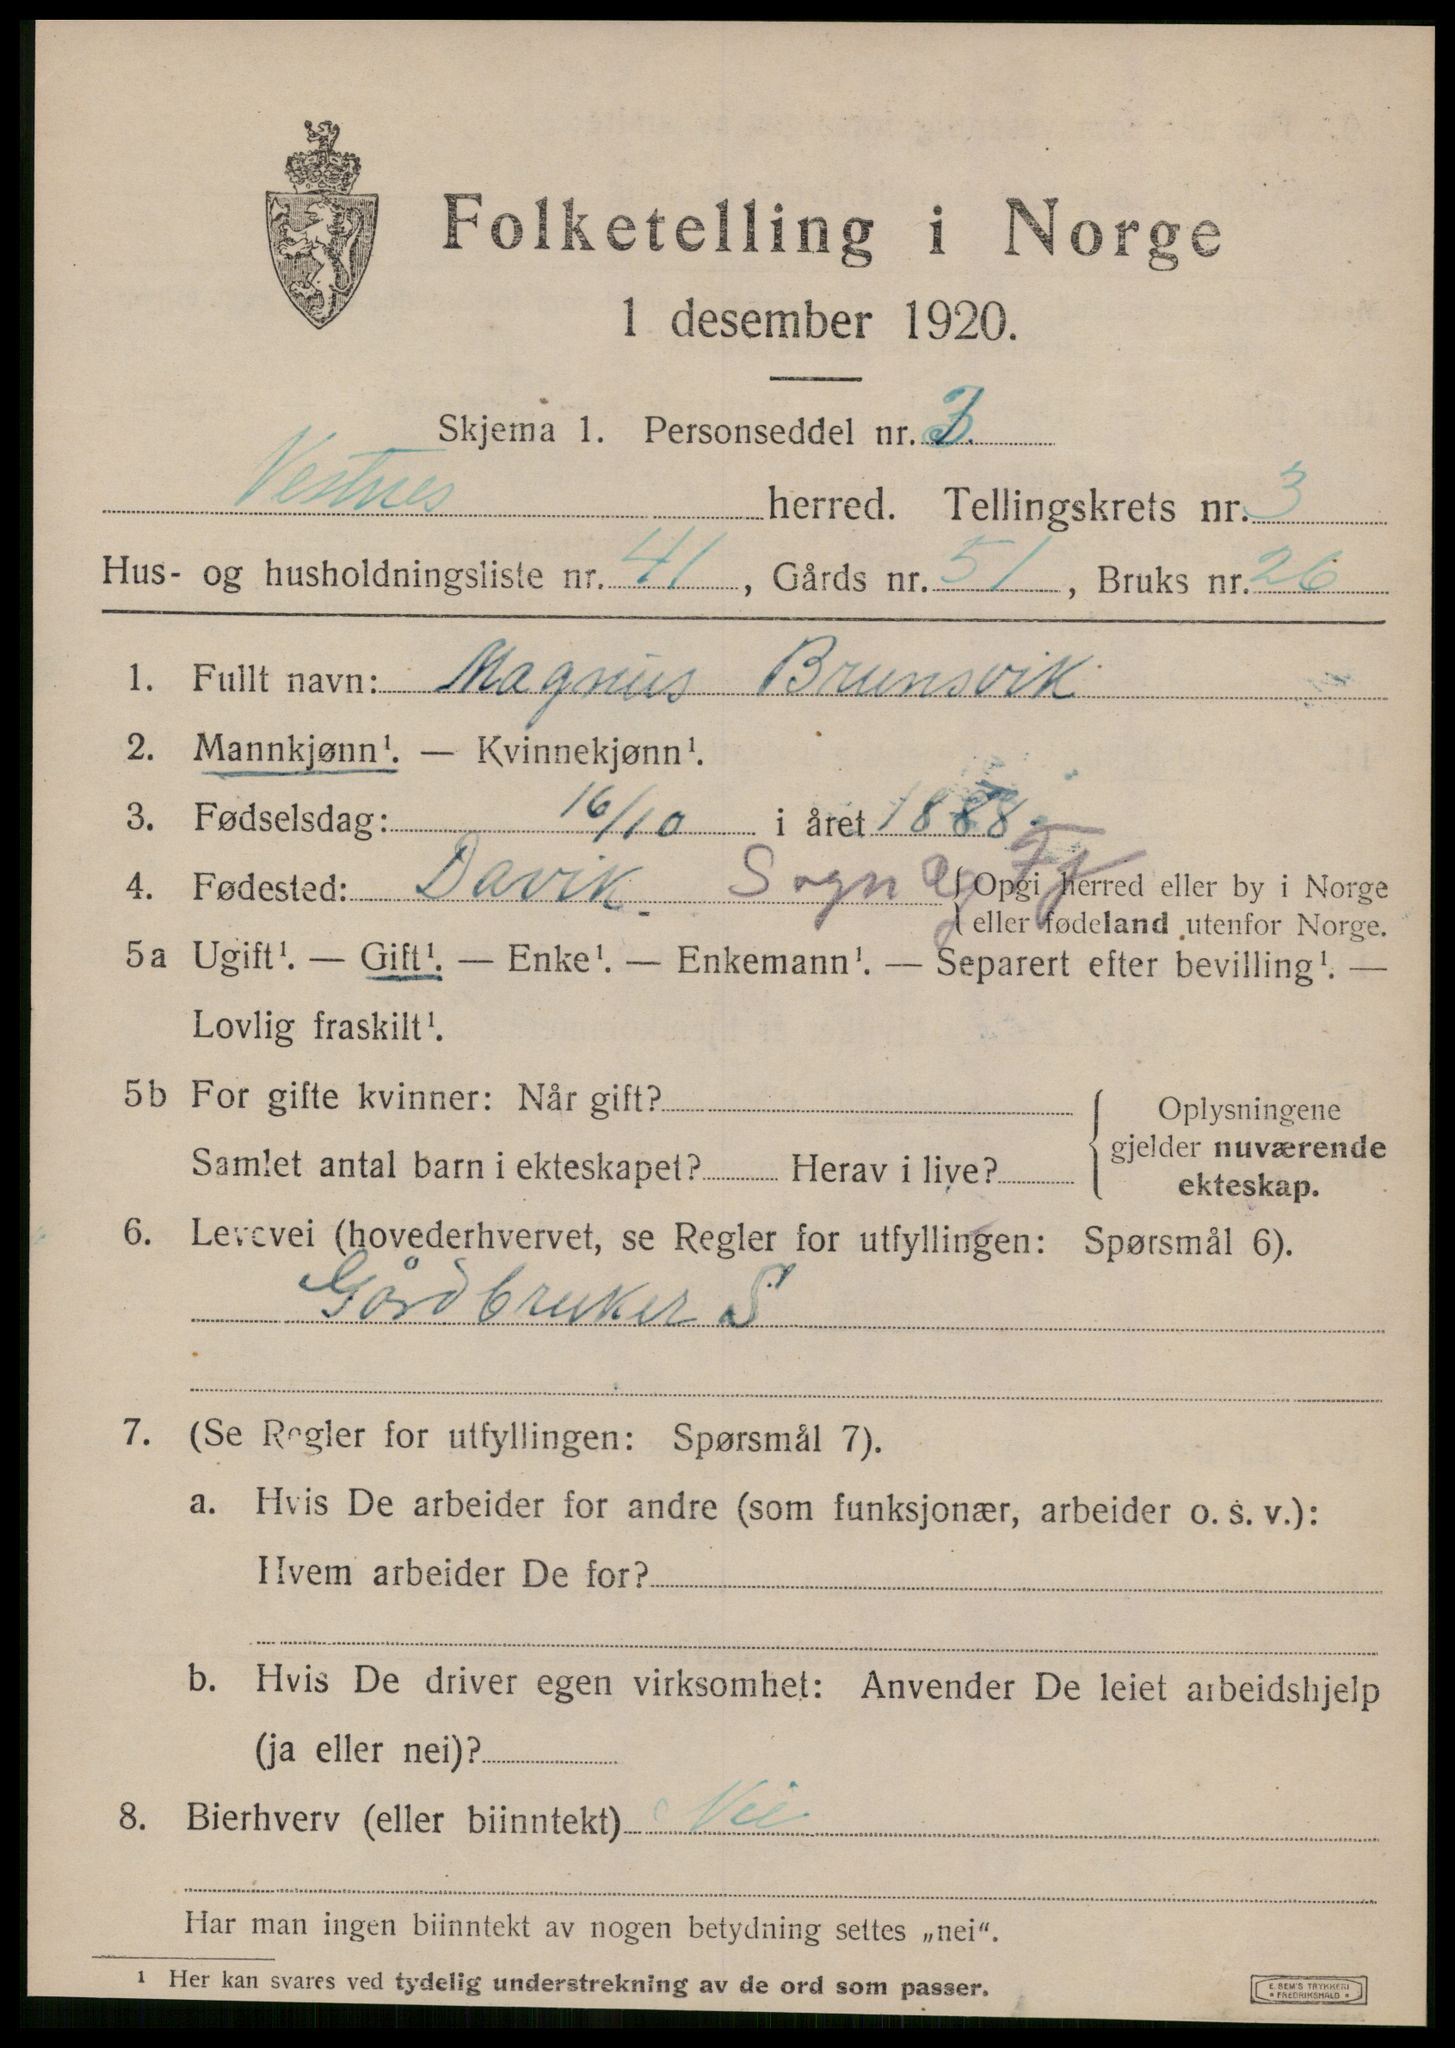 Folketelling i Norge
1 desember 1920.
Skjema 1. Personseddel nr.
Vestnes herred. Tellingskrets nr. 3
Hus- og husholdningsliste nr. 41, Gårds nr. 51, Bruks nr. 26
1. Fullt navn: Magnus Brunsvik
2. Mannkjønn¹. — Kvinnekjønn¹.
3. Fødselsdag: 16/10 i året 1888
4. Fødested: Davik Sogn og Fj {Opgi herred eller by i Norge
eller fødeland utenfor Norge.
5a Ugift¹. — Gift¹. — Enke¹. — Enkemann¹. — Separert efter bevilling¹. —
Lovlig fraskilt¹.
5b For gifte kvinner: Når gift? { Oplysningene
gjelder nuværende
Samlet antal barn i ekteskapet? Herav i live? ekteskap.
6. Levevei (hovederhvervet, se Regler for utfyllingen: Spørsmål 6).
Gårdbruker S
7. (Se Regler for utfyllingen: Spørsmål 7).
a. Hvis De arbeider for andre (som funksjonær, arbeider o. s. v.):
Hvem arbeider De for?
b. Hvis De driver egen virksomhet: Anvender De leiet arbeidshjelp
(ja eller nei)?
8. Bierhverv (eller biinntekt) Nei
Har man ingen biinntekt av nogen betydning settes „nei“.
¹ Her kan svares ved tydelig understrekning av de ord som passer.
E. SEM'S TRYKKERI
* FREDRIKSHALD *